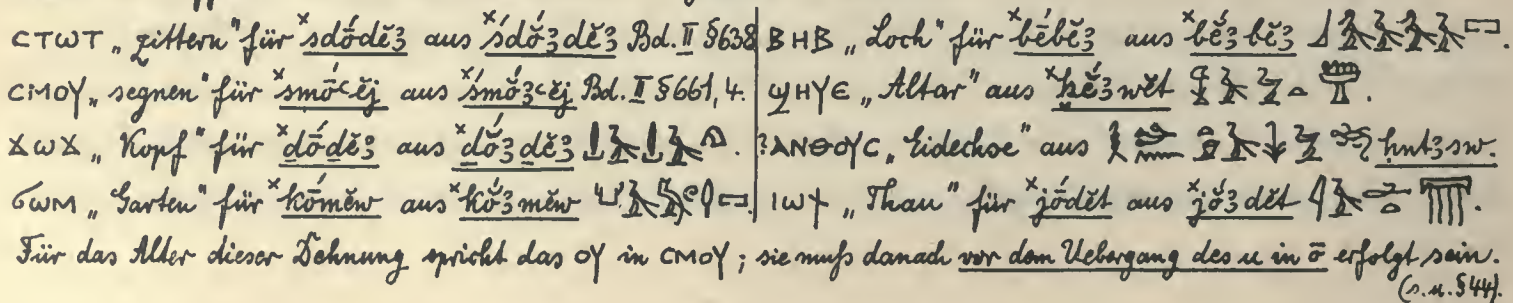 ⲤⲦⲰⲦ „zittern“ für ˣsdṓdĕꜣ aus ˣśdŏ́ꜣdĕꜣ Bd. II §638
ⲤⲘⲞⲨ „segnen“ für ˣsmō̆́ꜥĕj aus ˣśmŏ́ꜣꜥĕj Bd. II §661,4.
ϪⲰϪ „Kopf“ für ˣḏṓḏĕꜣ aus ˣḏŏ́ꜣḏĕꜣ
ϬⲰⲘ „Garten“ für ˣkṓmĕw aus ˣkŏ́ꜣmĕw
ⲂⲎⲂ „Loch“ für ˣbḗbĕꜣ aus ˣbĕ́ꜣbĕꜣ
ϢⲎⲨⲈ „Altar“ aus ˣḫĕ́ꜣwĕt
ϨⲀⲚⲐⲞⲨⲤ „Eidechse“ aus ḥntꜣsw.
ⲒⲰϮ „Thau“ für ˣjṓdĕt aus ˣjŏ́ꜣdĕt
Für das Alter dieser Dehnung spricht das ⲞⲨ in ⲤⲘⲞⲨ; sie muſs danach vor dem Uebergang des u in ō erfolgt sein.
(s. u. §44).